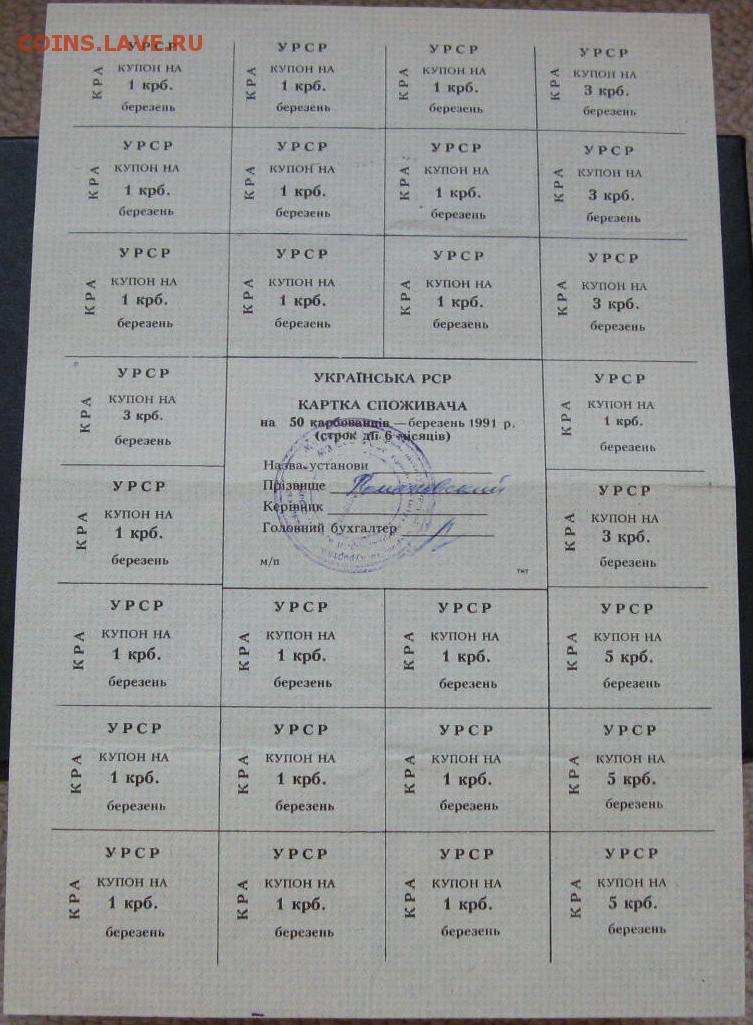 COINS.LAVE.RU
УРСР УРСР УРСР УРСР
КРА КУПОН НА КРА КУПОН НА КРА КУПОН НА КРА КУПОН НА
1 крб. 1 крб. 1 крб. 3 крб.
березень березень березень березень
УРСР УРСР УРСР УРСР
КРА КУПОН НА КРА КУПОН НА КРА КУПОН НА КРА КУПОН НА
1 крб. 1 крб. 1 крб. 3 крб.
березень березень березень березень
УРСР УРСР УРСР УРСР
КРА КУПОН НА КРА КУПОН НА КРА КУПОН НА КРА КУПОН НА
1 крб. 1 крб. 1 крб. 3 крб.
березень березень березень березень
УРСР
КРА КУПОН НА
3 крб.
березень
УРСР
КРА КУПОН НА
1 крб.
березень
УКРАЇНСЬКА РСР
КАРТКА СПОЖИВАЧА
на 50 карбованців — березень 1991 р.
(строк дії 6 місяців)
Назва установи
Прізвище
Керівник
Головний бухгалтер
м/п
тнт
УРСР
КРА КУПОН НА
1 крб.
березень
УРСР
КРА КУПОН НА
3 крб.
березень
УРСР УРСР УРСР УРСР
КРА КУПОН НА КРА КУПОН НА КРА КУПОН НА КРА КУПОН НА
1 крб. 1 крб. 1 крб. 5 крб.
березень березень березень березень
УРСР УРСР УРСР УРСР
КРА КУПОН НА КРА КУПОН НА КРА КУПОН НА КРА КУПОН НА
1 крб. 1 крб. 1 крб. 5 крб.
березень березень березень березень
УРСР УРСР УРСР УРСР
КРА КУПОН НА КРА КУПОН НА КРА КУПОН НА КРА КУПОН НА
1 крб. 1 крб. 1 крб. 5 крб.
березень березень березень березень